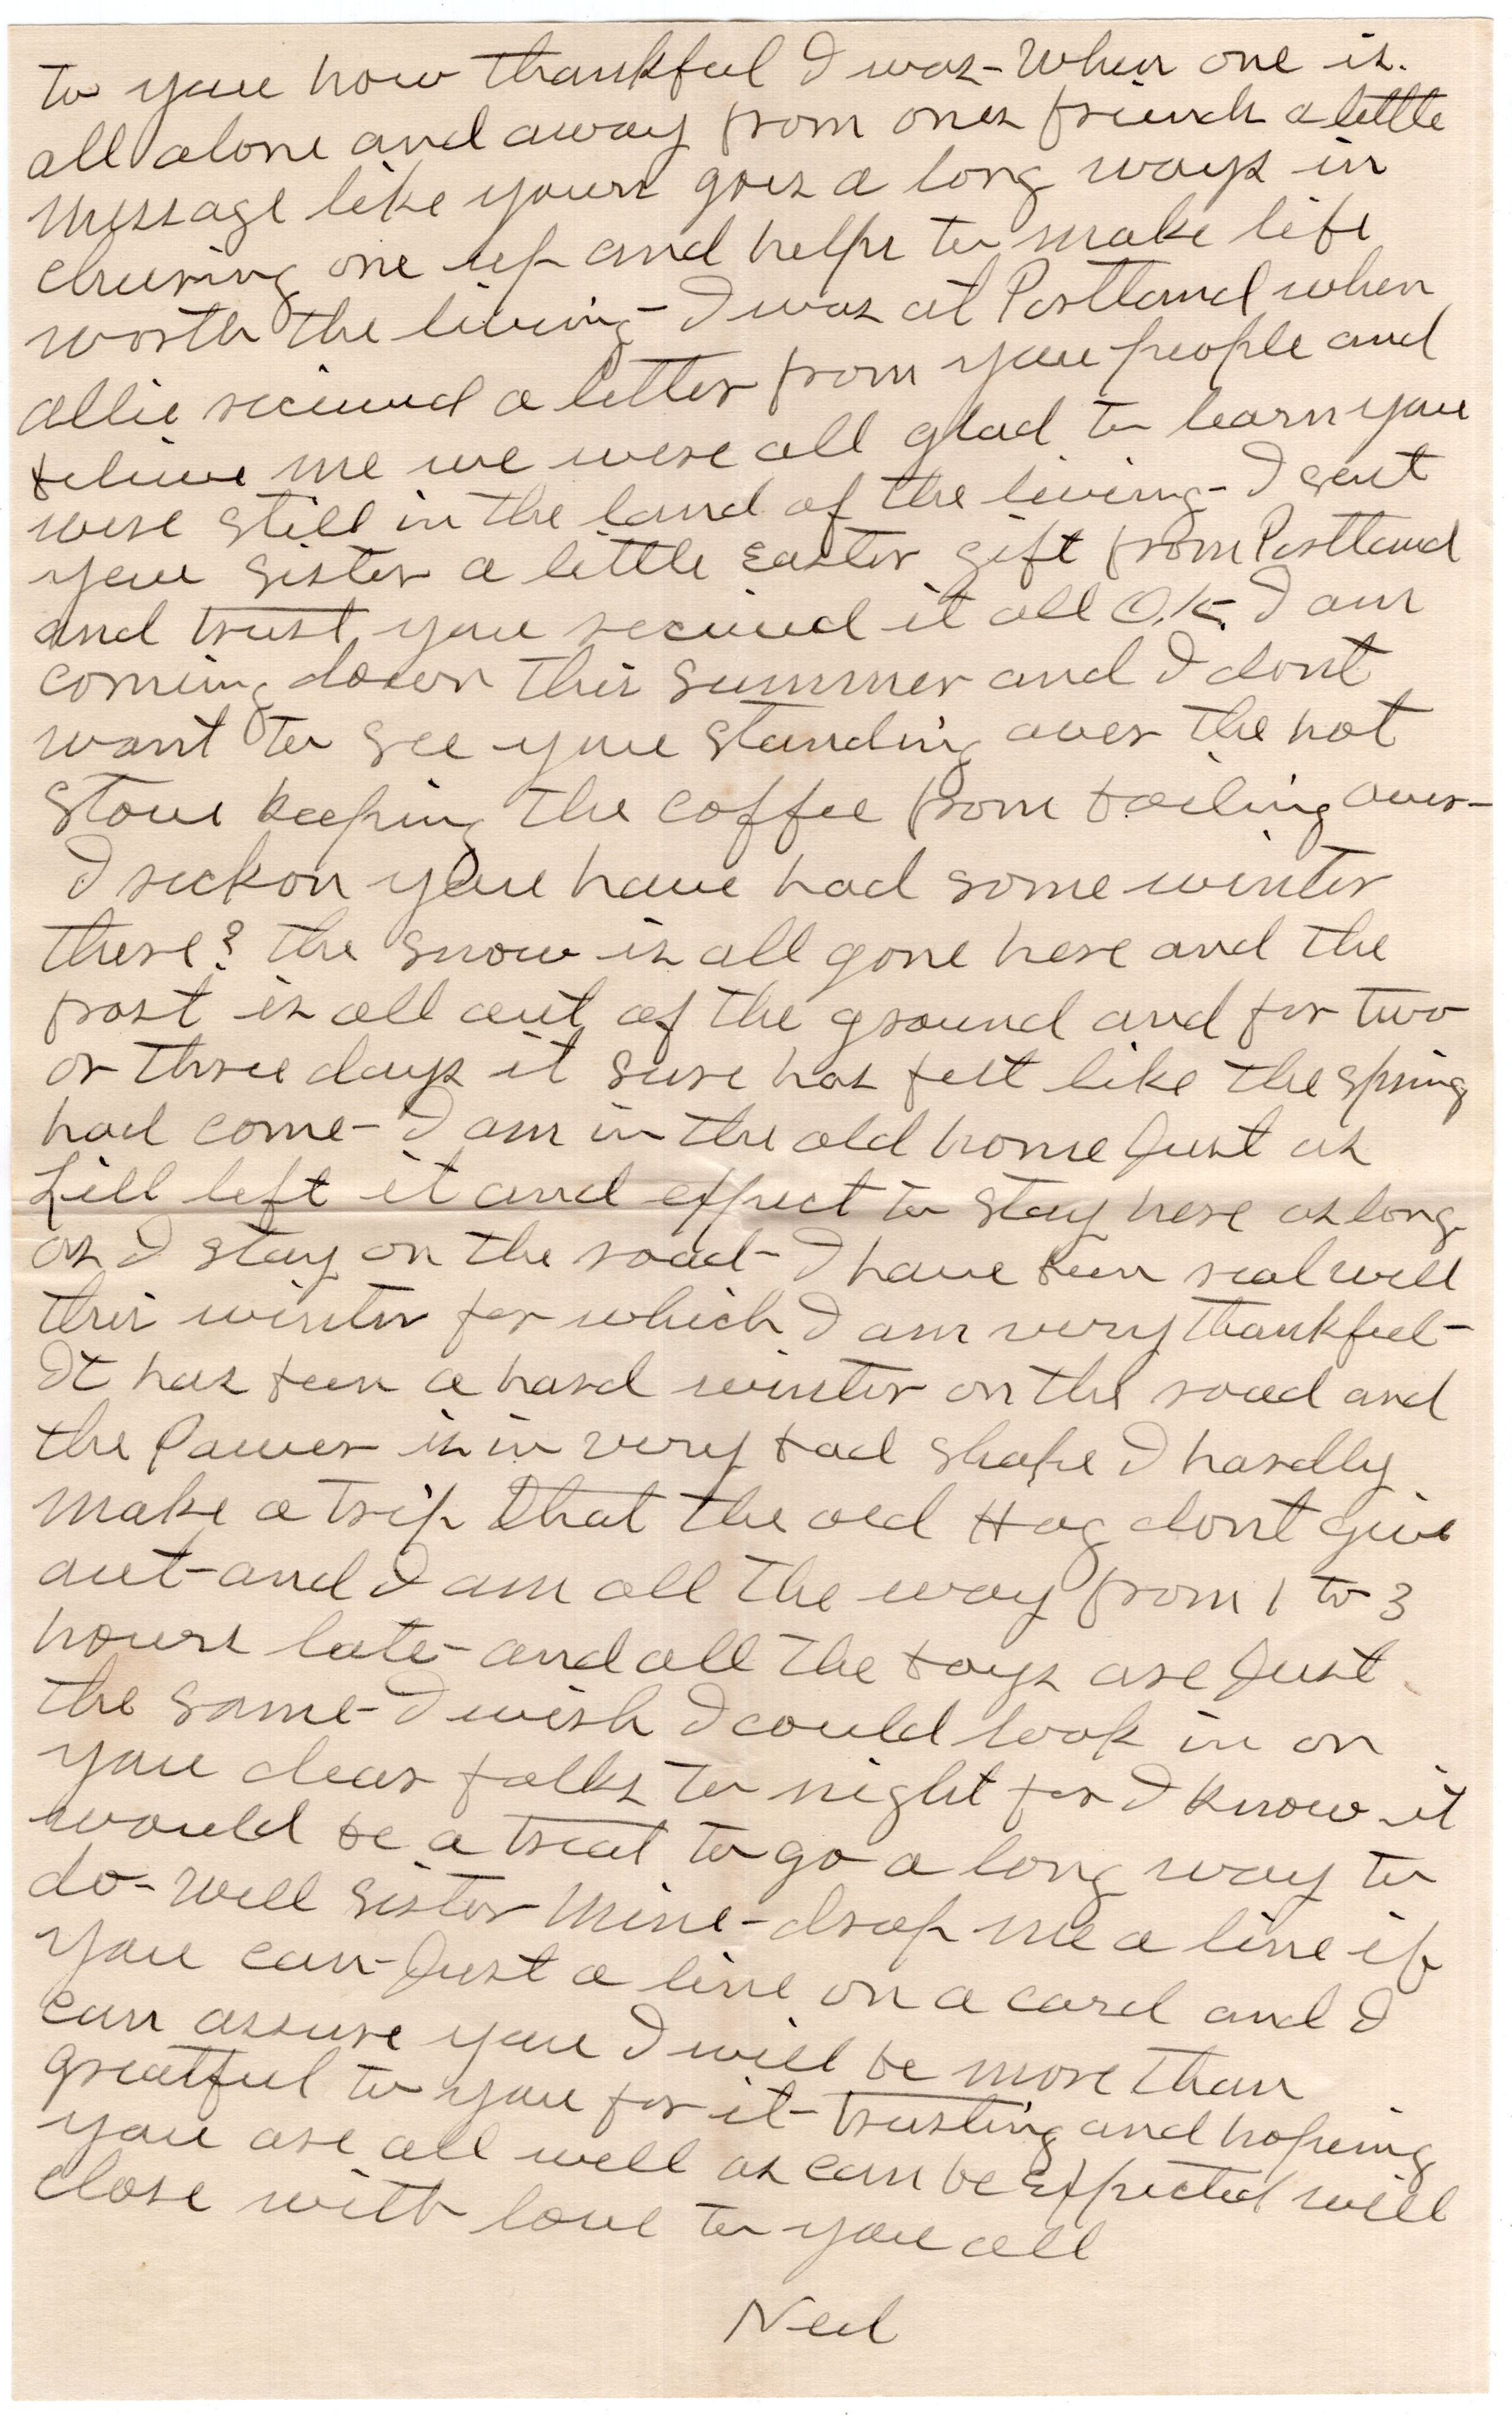 to you how thankful I was - When one is.
all alone and away from ones friends a little
message like yours goes a long ways in
cheering one up and helps to make life
worth the living - I was at Portland when
Allie received a letter from you people and
believe me we were all glad to learn you
were still in the land of the living - I sent
you Sister a little Easter gift from Portland
and trust you received it all O.K. I am
coming down this Summer and I dont
want to see you standing over the hot
stove keeping the coffee from boiling over -
I reckon you have had some winter
there? the snow is all gone here and the
frost is all out of the ground and for two
or three days it sure has felt like the spring
had come - I am in the old home Just as
Lill left it and expect to stay here as long
as I stay on the road - I have been real well
this winter for which I am very thankful -
It has been a hard winter on the road and
the Power is in very bad shape I hardly
make a trip that the old Hog dont give
out - and I am all the way from 1 to 3
hours late - and all the boys are Just
the same - I wish I could look in on
you dear folks to night for I know it
would be a treat to go a long way to
do - Well Sister Mine - drop me a line if
you can - Just a line on a card and I
can assure you I will be more than
greatful to you for it - trusting and hopeing
you are all well as can be Expected will
close with love to you all
Ned